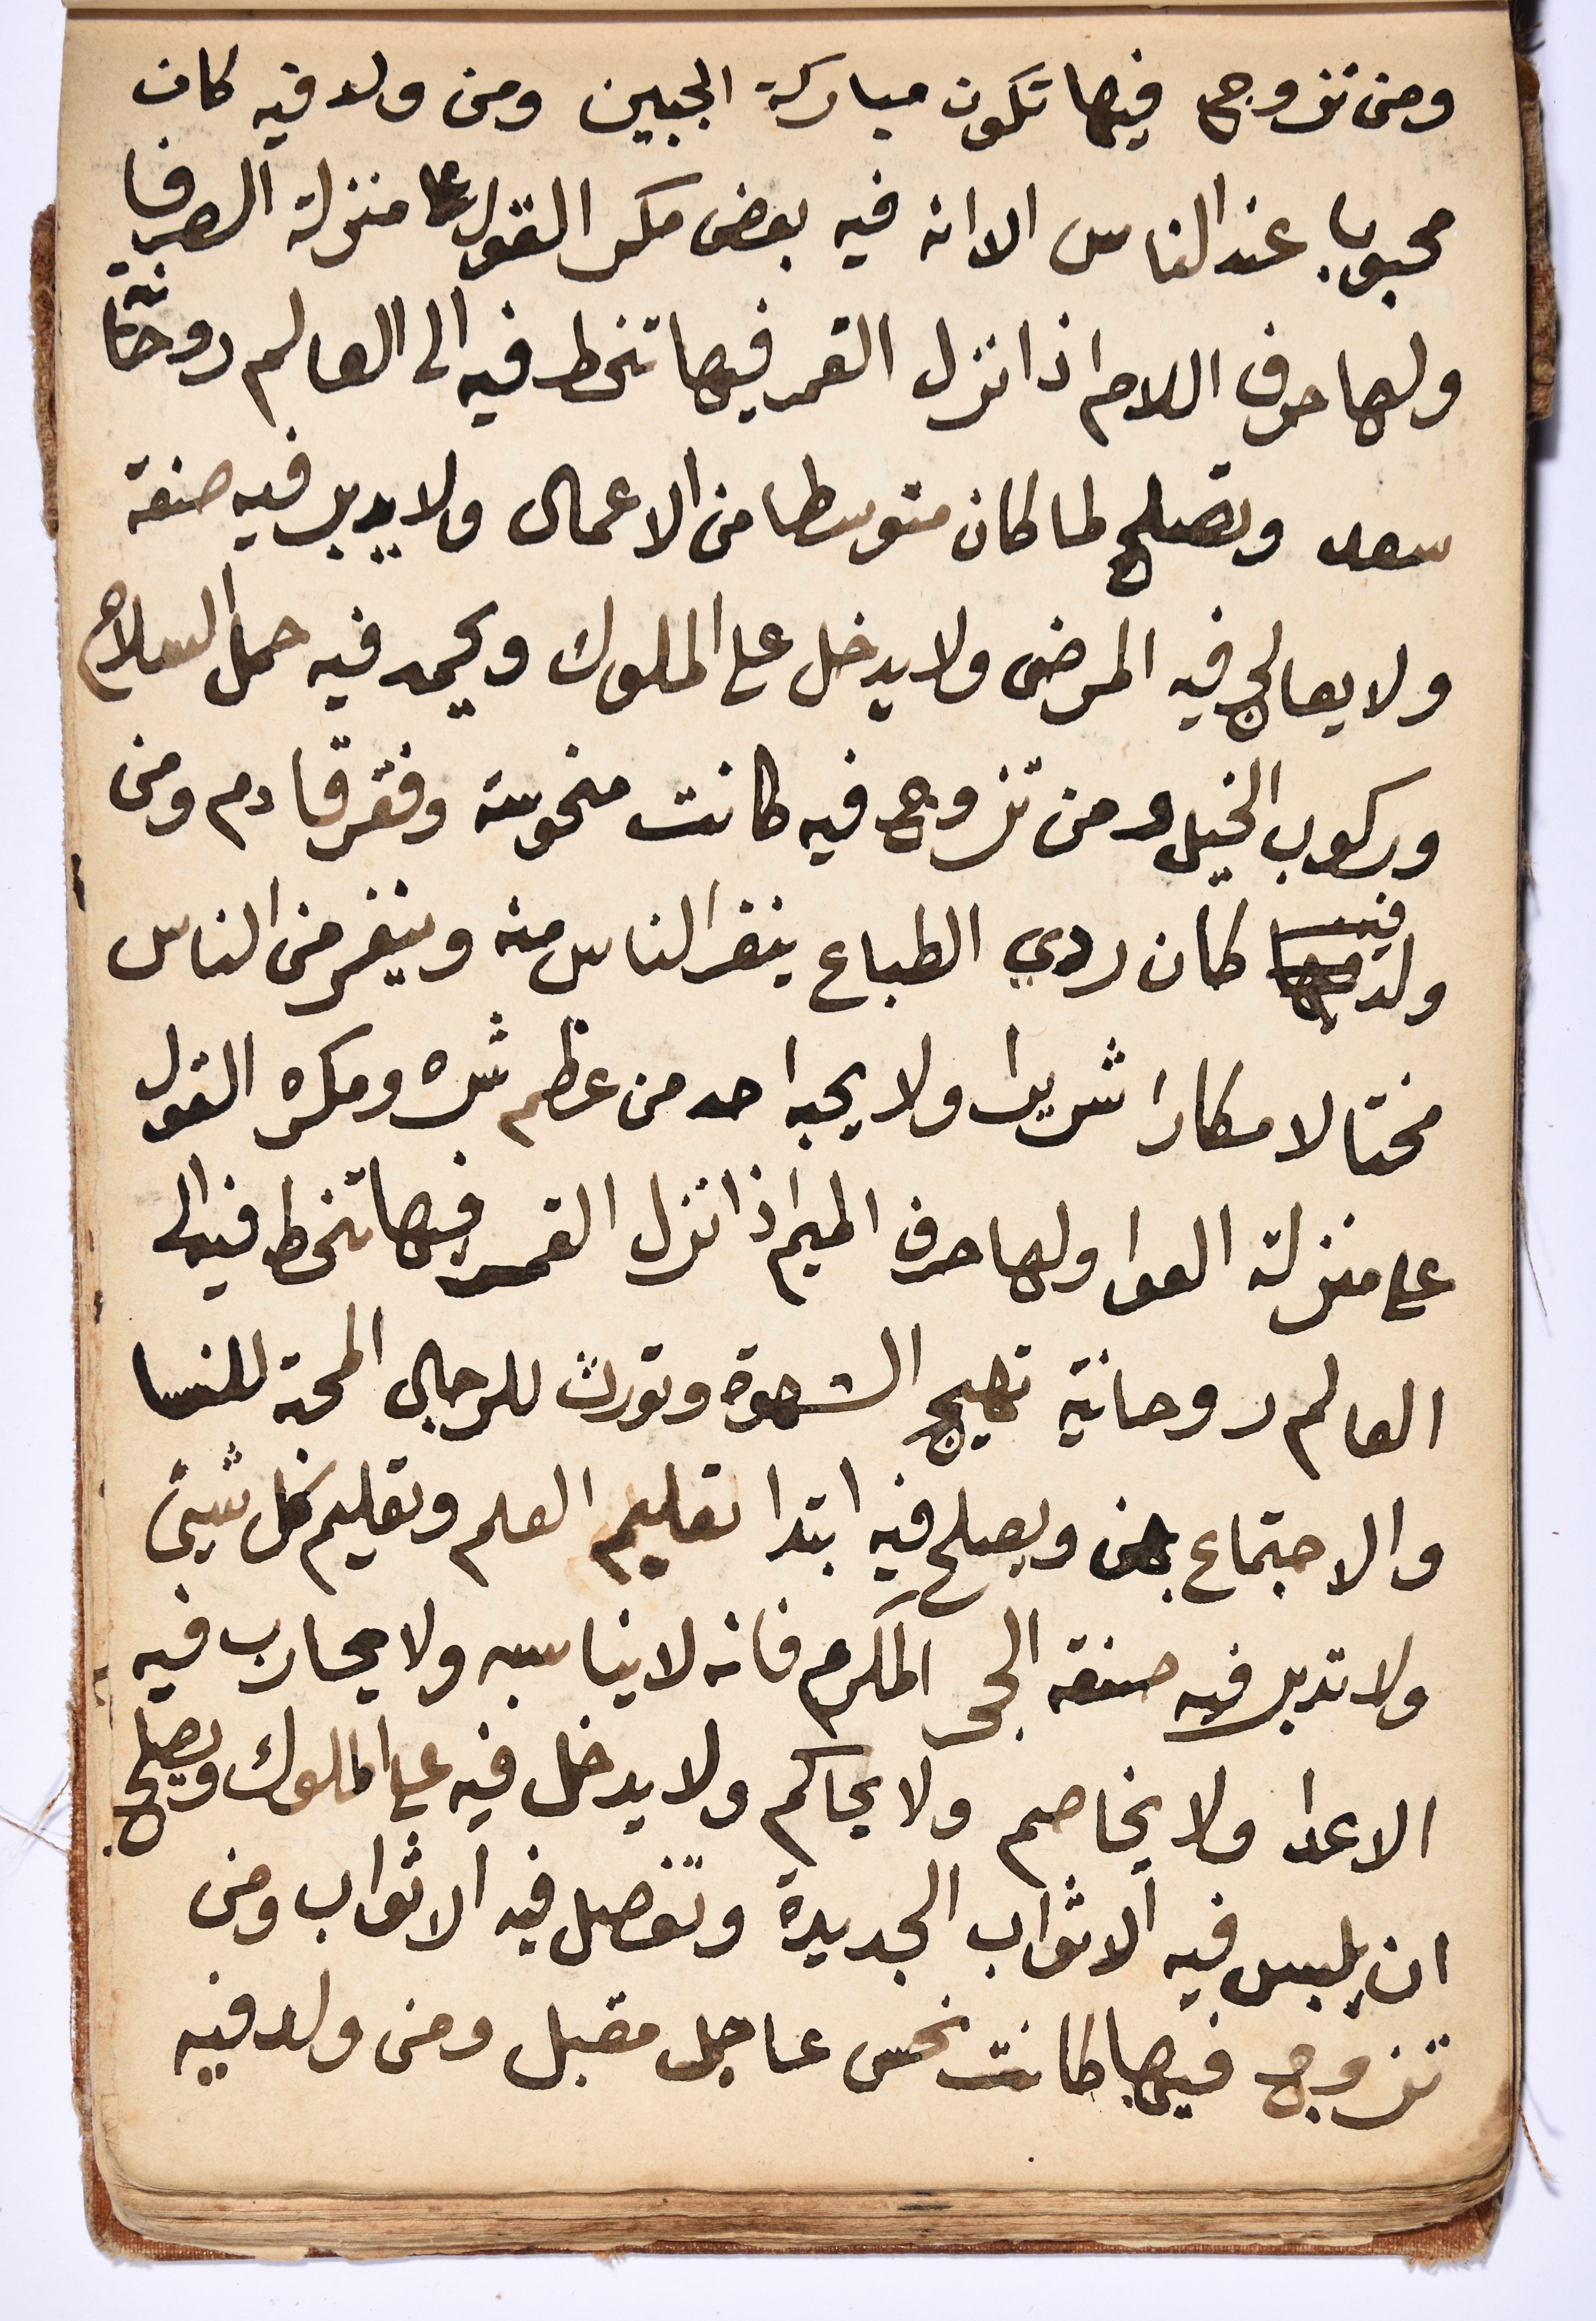 ومن تزوج فيها تكون مباركة الجبين ومن ولد فيه كان
محبوبا عند الناس الا انه فيه بعض مكر القول على منزلة الصرفا
ولها حرف اللام اذا نزل القمر فيها تنحط فيه الى العالم روحانية
سعد وتصلح لما كان متوسطا من الاعمال ولا يدبر فيه صنعة
ولا يعالج فيه المرضى ولا يدخل على الملوك ويحمد فيه حمل السلاح
وركوب الخيل ومن تزوج فيه كانت منحوسة وفقر قادم ومن
ولد فيه كان ردي الطباع ينفر الناس منه وينفر من الناس
مختالا مكارا شريرا ولا يحبه احد من عظم شره ومكره القول
على منزلة العوا ولها حرف الميم اذا نزل القمر فيها تنحط فيه الى
العالم روحانية تهيج الشهوة وتورث للرجال المحبة للنسا
والاجتماع بهن ويصلح فيه ابتدا تعليم العلم وتعليم كل شيئ
ولا تدبر فيه صنعة الحجر المكرم فانه لا يناسبه ولا يحارب فيه
الاعدا ولا يخاصم ولا يحاكم ولا يدخل فيه على الملوك ويصلح
ان يلبس فيه الاثواب الجديدة وتفصل فيه الاثواب ومن
تزوج فيها كانت نحس عاجل مقبل ومن ولد فيه